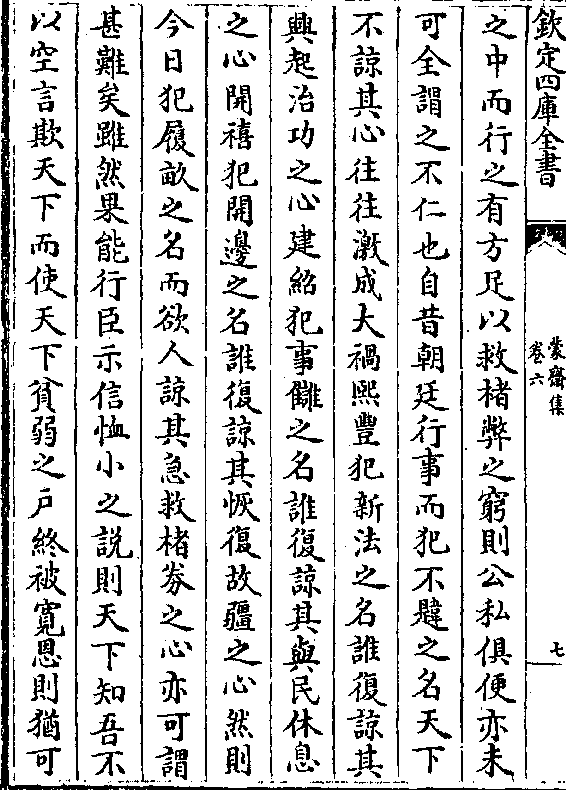 欽定四庫全書
蒙齋集
卷六
七
之中而行之有方足以救楮弊之窮則公私俱便亦未
可全謂之不仁也自昔朝廷行事而犯不韙之名天下
不諒其心往往激成大禍熙豐犯新法之名誰復諒其
興起治功之心建紹犯事讎之名誰復諒其與民休息
之心開禧犯開邊之名誰復諒其恢復故疆之心然則
今日犯履畝之名而欲人諒其急救楮券之心亦可謂
甚難矣雖然果能行臣示信恤小之說則天下知吾不
以空言欺天下而使天下貧弱之戶終被寛恩則猶可